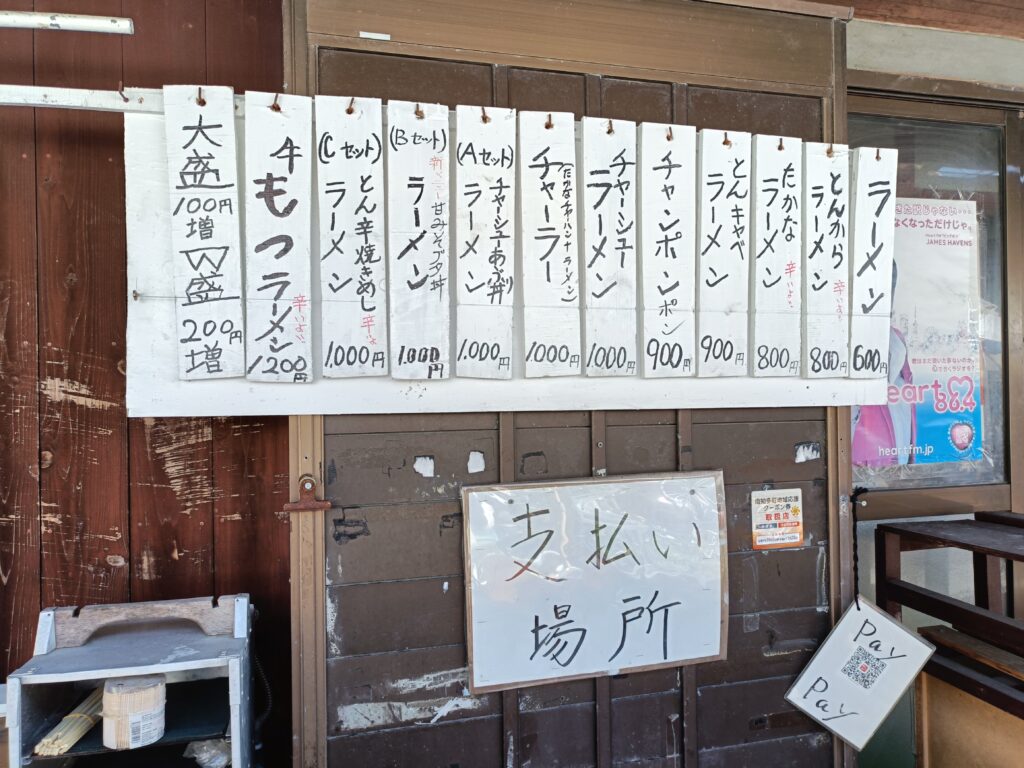 ラーメン
600円
とんから
ラーメン
辛いよ!
800円
たかな
ラーメン
辛いよ!
800円
とんキャベ
ラーメン
900円
チャンポンポン
900円
チャーシュー
ラーメン
1000円
チャーラー
(たかなチャーハンナラーメン)
1000円
(Aセット)
チャーシューあぶり丼
ラーメン
1.000円
(Bセット)
甘みそブタ丼
ラーメン
1.000円
(Cセット)
とん辛焼きめし
辛いよ
ラーメン
1.000円
牛もつラーメン
辛いよ!
1200円
大盛
100円
増
W盛
200円
増
支払い
場所
Pay
Pay
クーポン券
取扱店
なくなっただけじゃ。
JAMES HAVENS
heart
88.4
heartfm.jp